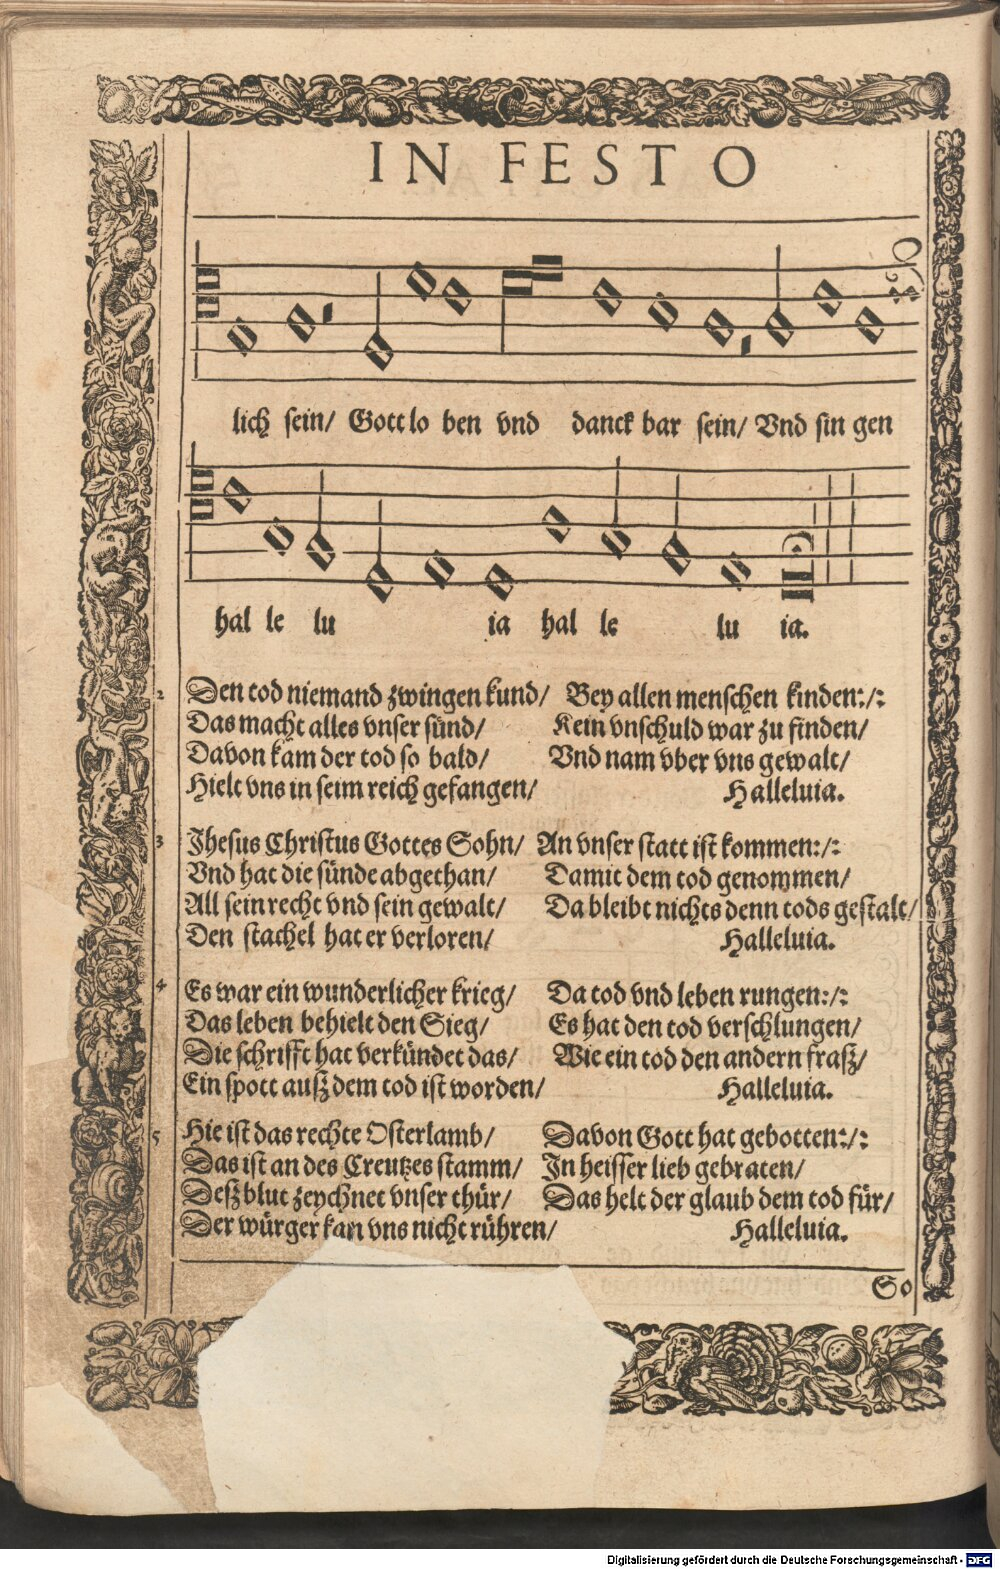 IN FESTO
lich sein/ Gott lo ben vnd danck bar sein/ Vnd sin gen
hal le lu ia hal le lu ia.
2 Den tod niemand zwingen kund/ Bey allen menschen kinden:/:
Das macht alles vnser sünd/ Kein vnschuld war zu finden/
Davon kam der tod so bald/ Vnd nam vber vns gewalt/
Hielt vns in seim reich gefangen/ Halleluia.
3 Jhesus Christus Gottes Sohn/ An vnser statt ist kommen:/:
Vnd hat die sünde abgethan/ Damit dem tod genommen/
All sein recht vnd sein gewalt/ Da bleibt nichts denn tods gestalt/
Den stachel hat er verloren/ Halleluia.
4 Es war ein wunderlicher krieg/ Da tod vnd leben rungen:/:
Das leben behielt den Sieg/ Es hat den tod verschlungen/
Die schrifft hat verkündet das/ Wie ein tod den andern fraß/
Ein spott auß dem tod ist worden/ Halleluia.
5 Hie ist das rechte Osterlamb/ Davon Gott hat gebotten:/:
Das ist an des Creutzes stamm/ In heisser lieb gebraten/
Deß blut zeychnet vnser thür/ Das helt der glaub dem tod für/
Der würger kan vns nicht rühren/ Halleluia.
So
Digitalisierung gefördert durch die Deutsche Forschungsgemeinschaft - DFG